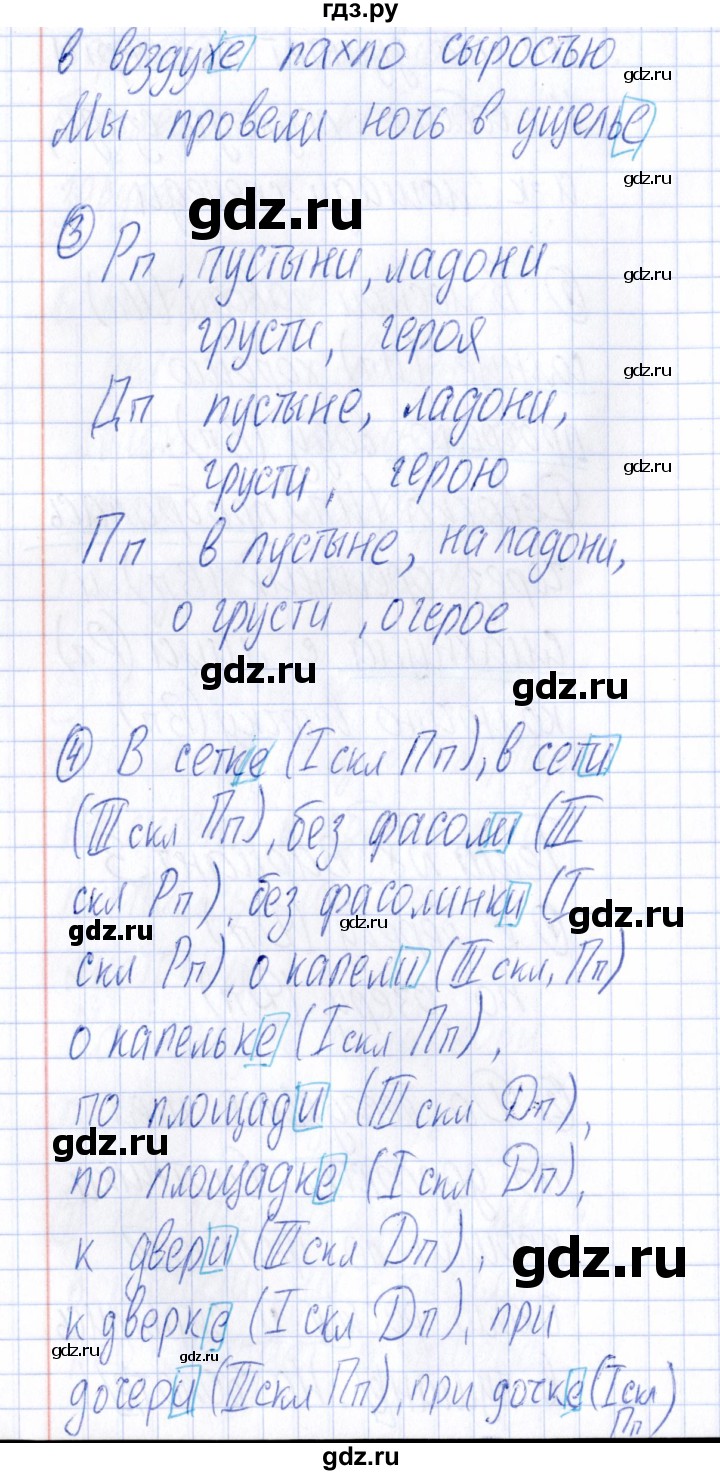 гдз.ру
в воздухе пахло сыростью
gdz.ru
Мы провели ночь в ущелье
gdz.ru
gdz.ru
3 Рп, пустыни, ладони
gdz.ru
грусти, героя
gdz.ru
Дп пустыне, ладони,
грусти, герою
gdz.ru
Пп в пустыне, на ладони,
о грусти, о герое
gdz.ru
gdz.ru
4 В сетке (I скл Пп), в сети
(III скл Пп), без фасоли (III
скл Рп), без фасолинки (I
gdz.ru
gdz.ru
gdz.ru
скл Рп), о капели (III скл, Пп)
о капельке (I скл Пп),
по площади (III скл Дп),
gdz.ru
gdz.ru
по площадке (I скл Дп),
к двери (III скл Дп),
gdz.ru
к дверке (I скл Дп), при
gdz.ru
gdz.ru
дочери (III скл Пп), при дочке (I скл
Пп)
gdz.ru
gdz.ru